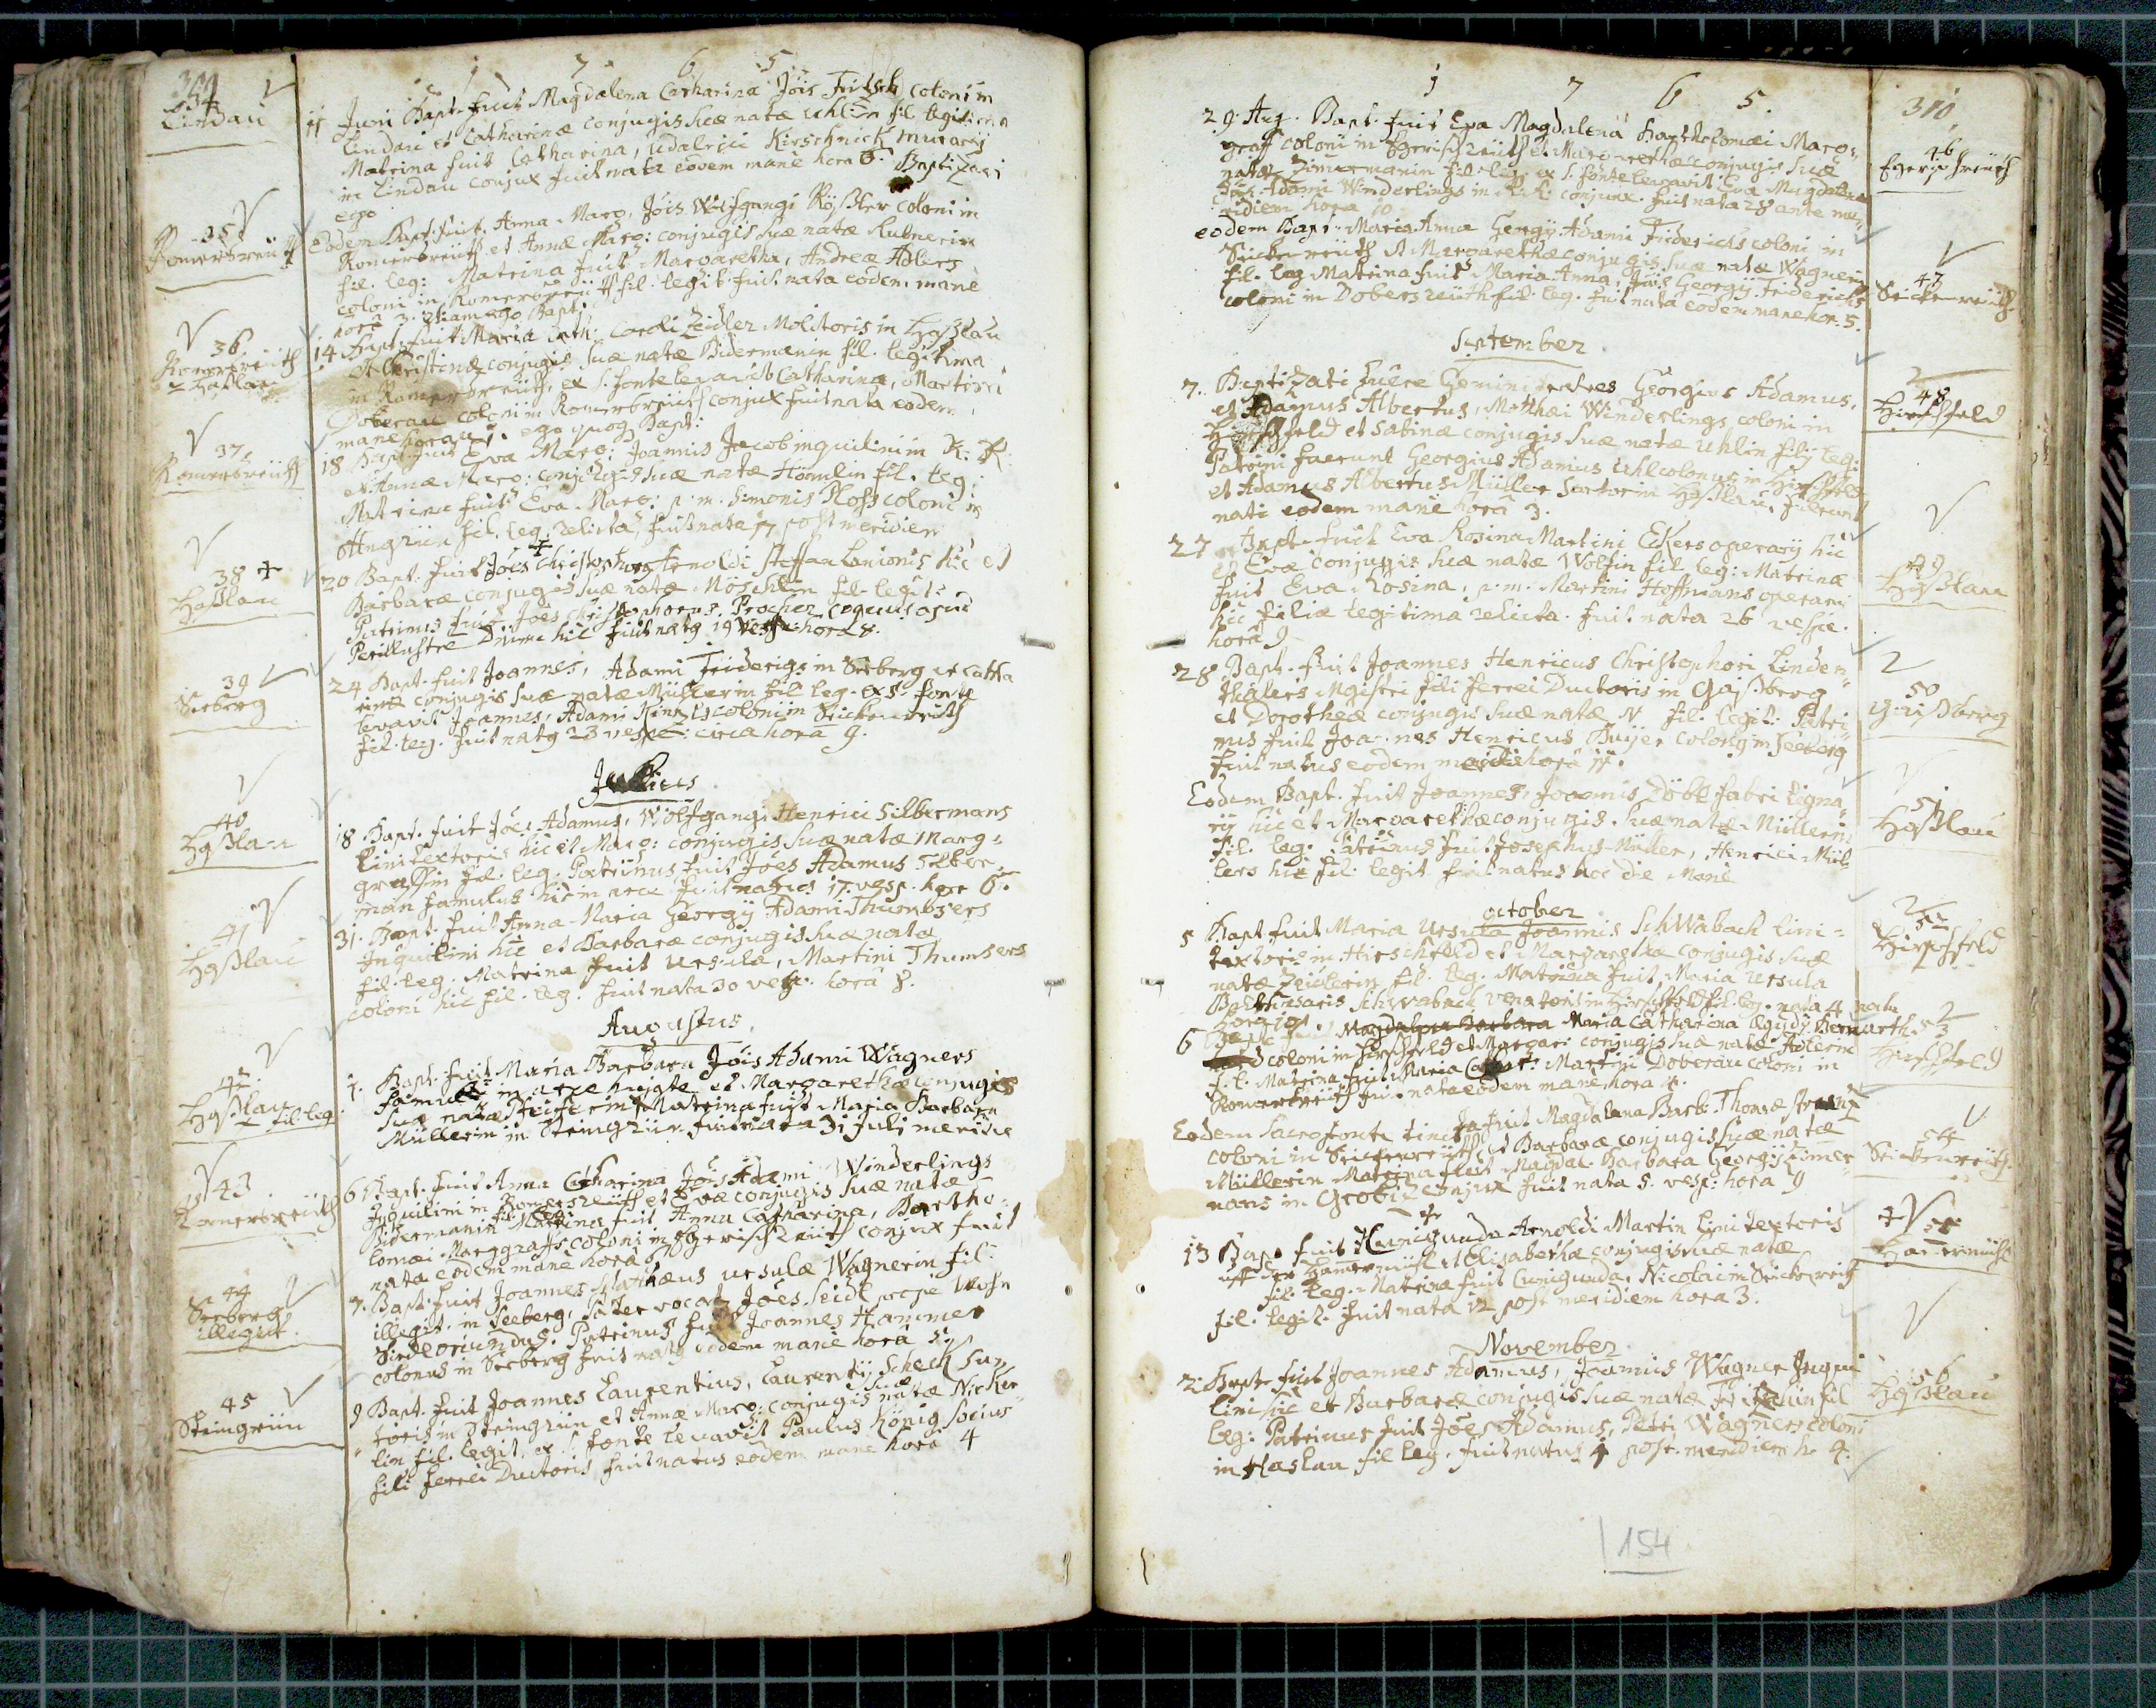 1 7 6 5.
34
Lindau
11 Juni Bapt. fuit Magdalena Catharina Jois Fritsch coloni in
Lindau et Catharinæ conjugis suæ natæ Uhlin fil. legitima
Matrina fuit Catharina, Udalrici Kirschnick murarij
in Lindau conjux fuit nata eodem mane hora 6. Baptizavi
ego
35
Romersreuth
Eodem Bapt. fuit. Anna Marg. Jois Wolfgangi Röstler coloni in
Romersreuth et Annæ Marg: conjugis suæ natæ Rubnerin
fil. leg: Matrina fuit Margaretha, Andreæ Adlers
coloni in Romersreuth fil. legit. fuit nata eodem mane
hora 3. etiam ego Bapt.
36
Romersreuth
Haßlau
14 Bapt. fuit Maria Cath: Caroli Zeidler Molitoris in Haßlau
et Christinæ conjugis suæ natæ Bidermanin fil. legitima
in Romersreuth, ex S. fonte levavit Catharina, Martini
Doberau coloni in Romersreuth conjux fuit nata eodem
mane hora 1. ego quoq Bapt:
37.
Romersreuth
18 Bapt. fuit Eva Marg: Joannis Jacob inquilini in R. R.
et Annæ Marg: conjugis suæ natæ Hömlin fil. leg:
Matrina fuit Eva Marg: p. m. Simonis Ploss coloni in
Ottengrün fil. leg. relicta, fuit nata 17 post meridiem
38 +
Haßlau
20 Bapt. fuit Jois Christophorus Arnoldi Steffan Lanionis hic et
Barbaræ conjugis suæ natæ Möschlin fil. legit:
Patrinus fuit Joes Christophorus Procher coquus apud
Perillustre Dnum hic fuit natq 19 vesp: hora 8.
39
Seeberg
24 Bapt. fuit Joannes, Adami Friderigs in Seeberg et Catha
rinæ conjugis suæ natæ Müllerin fil. leg. ex S. fonte
levavit Joannes, Adami Künzls coloni in Seickenreuth
fil. leg. fuit natq 23 vesp: circa hora 9.
Julius
40
Haßlau
18 Bapt. fuit Joes Adamus, Wolfgangi Henrici Silbermans
linitextoris hic et Marg: conjugis suæ natæ Marg=
graffin fil. leg. Patrinus fuit Joes Adamus Silber
man famulus hic in arce fuit natus 17. vesp. hora 6.
41
Haßlau
31. Bapt. fuit Anna Maria Georgij Adami Thumbsers
Inquilini hic et Barbaræ conjugis suæ nata
fil. leg. Matrina fuit Ursula, Martini Thumsers
coloni hic fil. leg. fuit nata 30 vesp. hora 8.
Augustus
42.
Haßlau
fil. leg.
1. Bapt. fuit Maria Barbara Jois Adami Wagners
famuli in arce hujate et Margarethæ conjugis
suæ natæ Matrina fuit Maria Barbara
Müllerin in Steingrün. fuit nata 31 Julij meridie
43
Romersreuth
6 Bapt. fuit Anna Catharina Jois Adami Winderlings
Inquilini in Romersreuth et Evæ conjugis suæ natæ
Bidermanin fil. leg. Matrina fuit Anna Catharina, Bartho=
lomæi Marggraffs coloni in Egerischreuth conjux fuit
nata eodem mane hora 6
44
Seeberg
illegit.
7. Bapt. fuit Joannes Mathæus Ursulæ Wagnerin fil.
illegit. in Seeberg, Pater vocatq Joes Seidl prope
oriundus. Patrinus fuit Joannes Hammer
colonus in Seeberg fuit natq eodem mane hora 5
45
Steingrün
9 Bapt. fuit Joannes Laurentius, Laurentij Scheck Sar
toris in Steingrün et Annæ Marg: conjugis suæ natæ Nicker
lin fil. legit. ex S. fonte levavit Paulus König socius
fili ferrei Ductoris fuit natus eodem mane hora 4
1 7 6 5.
310
46
Egerischreuth
29. Aug. Bapt. fuit Eva Magdalena Bartholomæi Marg=
graff coloni in Egerischreuth et Margarethæ conjugis suæ
natæ Zimermanin fil. leg. ex S. fonte levavit Eva Magdalena
Jois Adami Winderlings in R. R. conjunx. fuit nata 28 ante me=
ridiem hora 10.
47
Seickenreuth
eodem Bapt. Maria Anna Georgij Adami Friderichs coloni in
Seickenreuth et Margarethæ conjugis suæ natæ Wagnerin
fil. leg Matrina fuit Maria Anna, Jois Georgij Friderichs
coloni in Dobersreuth fil. leg. fuit nata eodem mane hor. 5.
September
48
Hirschfeld
7. Baptizati fuere Gemini fratres Georgius Adamus,
et Adamus Albertus, Mathæi Winderlings, coloni in
Hirschfeld et Sabinæ conjugis suæ natæ Uhlin filij leg:
Patrini fuerunt Georgius Adamus Uhl colonus in Hirschfeld
et Adamus Albertus Müller Sartor in Haßlau. fuerunt
nati eodem mane hora 3.
49
Haßlau
27 Bapt. fuit Eva Rosina Martini Eckers operarij hic
et Evæ conjugis suæ natæ Wolfin fil leg: Matrina
fuit Eva Rosina, p. m. Martini Hoffmans operarij
hic filia legitima relicta. fuit nata 26 vespe.
hora 9
50
Gaißberg
28 Bapt. fuit Joannes Henricus Christophori Linden=
thalers Mgistri fili ferrei Ductoris in Gaißberg
et Dorotheæ conjugis suæ natæ N fil. legit: Patri
nus fuit Joannes Henricus Buyer colonq in Seeberg
fuit natus eodem meridie hora 11.
51
Haßlau
Eodem Bapt. fuit Joannes, Joannis Döbl fabri ligna=
rij hic et Margarethæ conjugis suæ natæ Müllerin
fil. leg. Patrinus fuit Josephus Müller, Henrici Mül=
lers hic fil. legit fuit natus hoc die mane
October
52
Hirschfeld
5 Bapt fuit Maria Ursula Joannis Schwabach lini=
textoris in Hirschfeld et Margaretha conjugis suæ
natæ Zeidlerin fil. leg. Matrina fuit, Maria Ursula
Balthasaris Schwabach venatoris in Hirschfeld fil. leg. nata 4 nata
hora 10.
53
Hirschfeld
6 Bapt fuit Magdalena Barbara Maria Catharina Ægidij Bernarth
coloni in Hirschfeld et Margari conjugis suæ natæ Adlerin
f. l. Matrina fuit Maria Cathar: Martini Doberau coloni in
Romersreuth fuit nata eodem mane hora 4.
54
Seickenreuth
Eodem Sacro fonte tincta fuit Magdalena Barb: Thomæ
coloni in Seickenreuth et Barbaræ conjugis suæ natæ
Müllerin Matrina fuit Magdal. Barbara Georgij Zimer=
mans in Grobiz conjux fuit nata 5. vesp: hora 9
+ 55
Hamermühl
13 Bapt fuit Kunigunda Arnoldi Martin linitextoris
uff der Hamermühl et Elisabethæ conjugis suæ natæ
fil. leg. Matrina fuit Cunigunda, Nicolai in Seickenreuth
fil. legit. fuit nata 12 post meridiem hora 3.
November
56
Haßlau
2. Bapt. fuit Joannes Adamus, Joannis Wagner Inqui
lini hic et Barbaræ conjugis suæ natæ Fritschin fil
leg: Patrinus fuit Joes Adamus, Petri Wagners coloni
in Haslau fil leg. fuit natus 1 post meridiem h. 4.
154